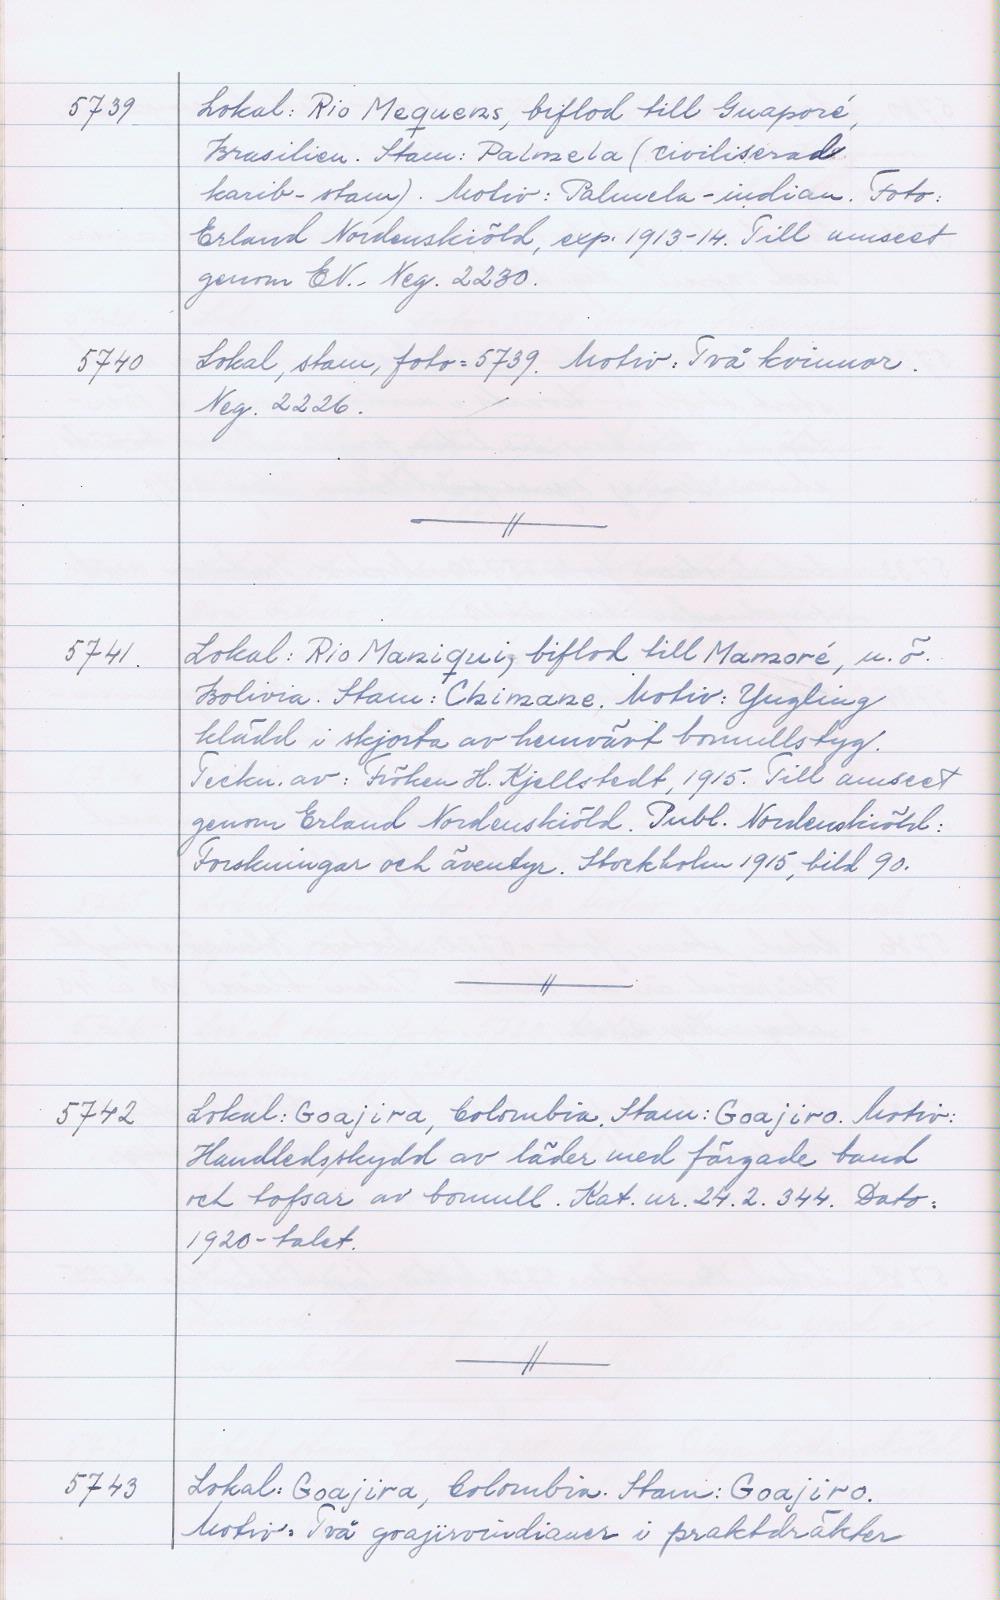 5739 Lokal: Rio Mequens, biflod till Guaporé,
Brasilien. Stam: Palmela (civiliserad
karib-stam). Motiv: Palmela-indian. Foto:
Erland Nordenskiöld, exp. 1913-14. Till museet
genom EN.. Neg. 2230.
5740 Lokal, stam, foto = 5739. Motiv: Två kvinnor.
Neg. 2226.
5741. Lokal: Rio Maniqui, biflod till Mamoré, n.ö.
Bolivia. Stam: Chimane. Motiv: Yngling
klädd i skjorta av hemvävt bomullstyg.
Teckn. av: Fröken H. Kjellstedt, 1915. Till museet
genom Erland Nordenskiöld. Publ. Nordenskiöld:
Forskningar och äventyr. Stockholm 1915, bild 90.
5742 Lokal: Goajira, Colombia. Stam: Goajiro. Motiv:
Handledsskydd av läder med färgade band
och tofsar av bomull. Kat. nr. 24.2.344. Dato:
1920-talet.
5743 Lokal: Goajira, Colombia. Stam: Goajiro.
Motiv: Två goajiroindianer i praktdräkter